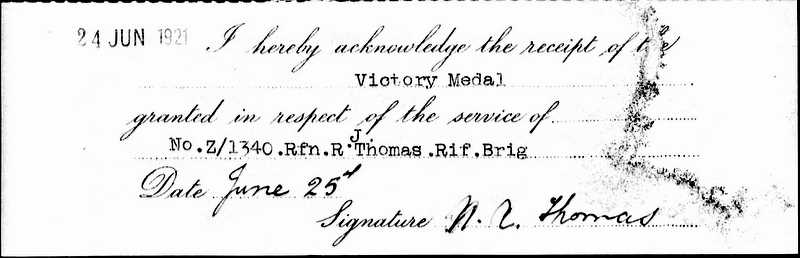 24 JUN 1921 I hereby acknowledge the receipt of the
Victory Medal
granted in respect of the service of
No.Z/1340.Rfn.R.J.Thomas.Rif.Brig
Date June 25
Signature Thomas